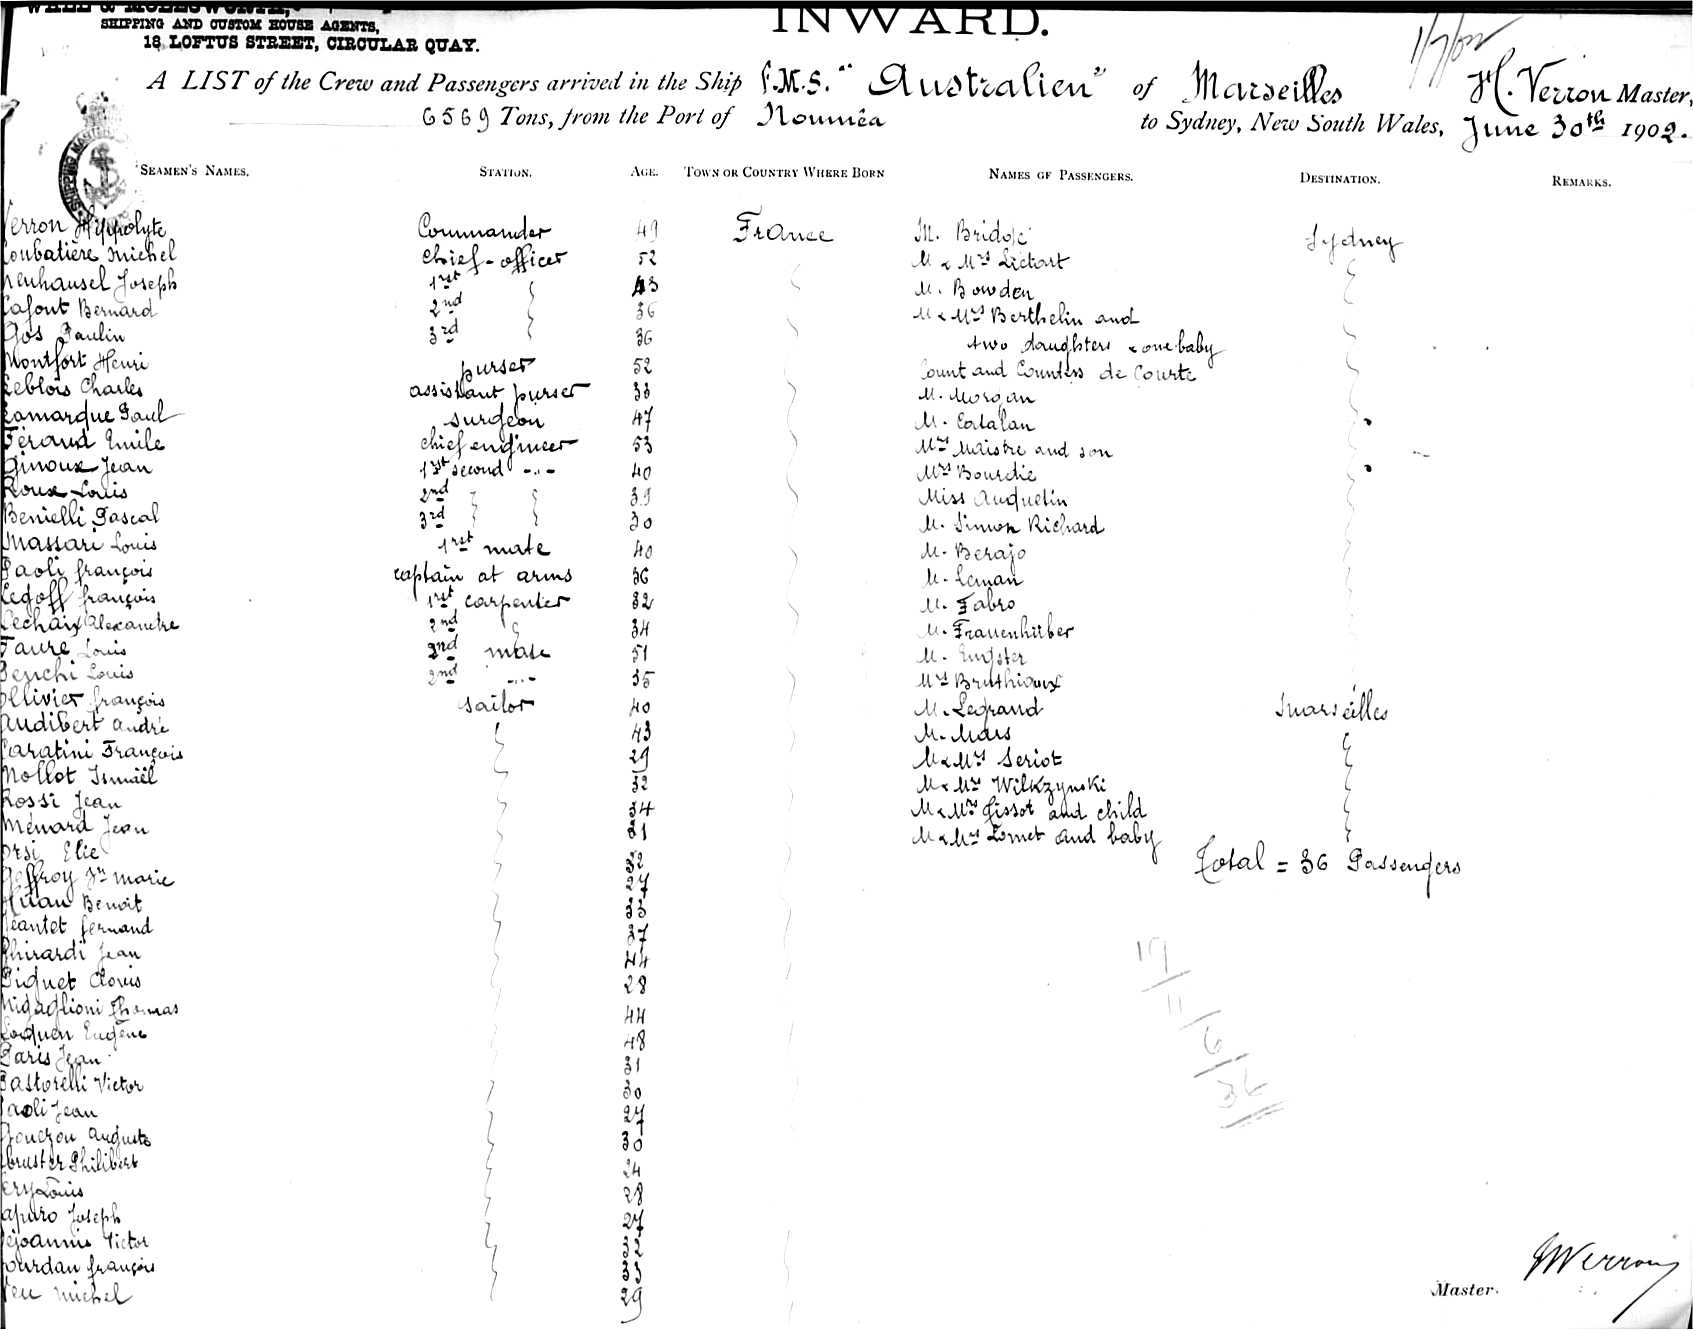 SHIPPING AND CUSTOM HOUSE AGENTS,
18, LOFTUS STREET, CIRCULAR QUAY.
INWARD.
1/7/02
A LIST of the Crew and Passengers arrived in the Ship F.M.S. "Australien" of Marseilles H. Verron Master,
6569 Tons, from the Port of Nouméa to Sydney, New South Wales, June 30th 1902.
SEAMEN'S NAMES. STATION. AGE. TOWN OR COUNTRY WHERE BORN NAMES OF PASSENGERS. DESTINATION. REMARKS.
Verron Hippolyte Commander 49 France M. Sydney
Coubatière Michel Chief-officer 52 M & Mrs Lictort
Neuhausel Joseph 1rst 43 M. Bowden
Lafont Bernard 2nd 36 M & Mrs Berthelin and
Gos Paulin 3rd 36 two daughters & one baby
Montfort Henri purser 52 Count and Countess de Courte
Leblois Charles assistant purser 33 M. Morgan
Lamarque Paul surgeon 47 M. Catalan
Feraud Emile chief engineer 53 Mrs Maistre and son
Ginoux Jean 1rst second -"- 40 Mrs Bourdie
Roux Louis 2nd 39 Miss Auquetin
Benielli Pascal 3rd 30 M. Simon Richard
Massari Louis 1rst mate 40 M. Berajo
Paoli françois captain at arms 36 M. Leman
Legoff françois 1rst carpenter 32 M. Fabro
Lechaix Alexandre 2nd 34 M. Frauenhüber
Faure Louis 2nd mate 51 M.
Louis 2nd -"- 35 Mrs Bruthiaux
Ollivier françois sailor 40 M. Legrand Marseilles
Audibert André 43 M. Mars
Caratini François 29 M & Mrs Seriot
Nollot Ismaël 32 M & Mrs Wilkzynski
Rossi Jean 34 M & Mrs Gissot and child
Ménard Jean M & Mrs Lomet and baby
Orsi Elie
Total = 36 Passengers
Geffroy Jn Marie
Huan Benoit
Jeantet fernand
Ghirardi Jean
Piquet Clovis 28
Migaglioni Thomas 44
Locquen Eugène 48
Paris Jean 31
Pastorelli Victor 30
Paoli Jean 27
Gouezou Auguste 30
Philibert 24
Louis 28
Joseph 27
Victor
Jourdan françois
Michel 29
19
11
6
36
HVerron
Master.